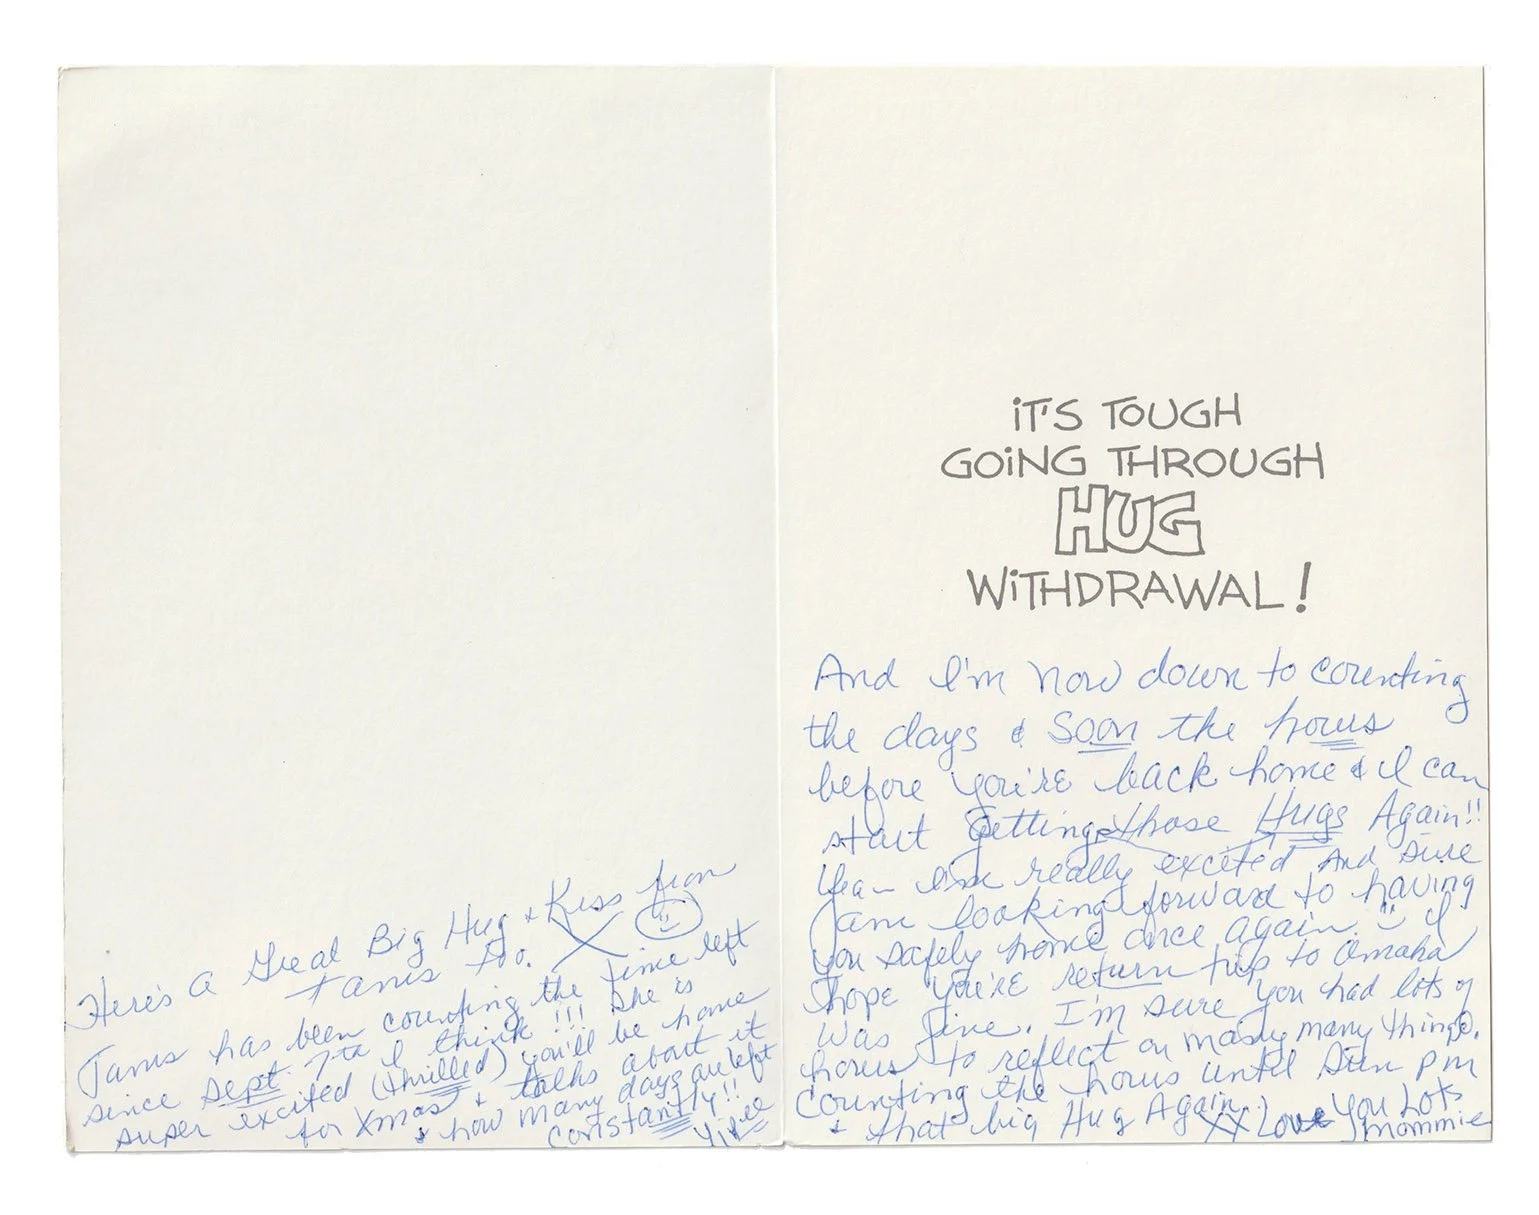 Here's A Great Big Hug + Kiss from
Tanis too.
Tanis has been counting the time left
since Sept 7th I think!!! She is
super excited (thrilled) you'll be home
for Xmas & talks about it
& how many days are left
constantly!!
Yipee
iT'S TOUGH
GOiNG THROUGH
HUG
WiTHDRAWAL!
And I'm now down to counting
the days & Soon the hours
before you're back home & I can
start getting those Hugs Again!!
Yea - I'm really excited And sure
am looking forward to having
you safely home once again. I
hope you're return trip to Omaha
was fine. I'm sure you had lots of
hours to reflect on many many things.
Counting the hours until Sun pm
& that big Hug Again XX Love You Lots
Mommie